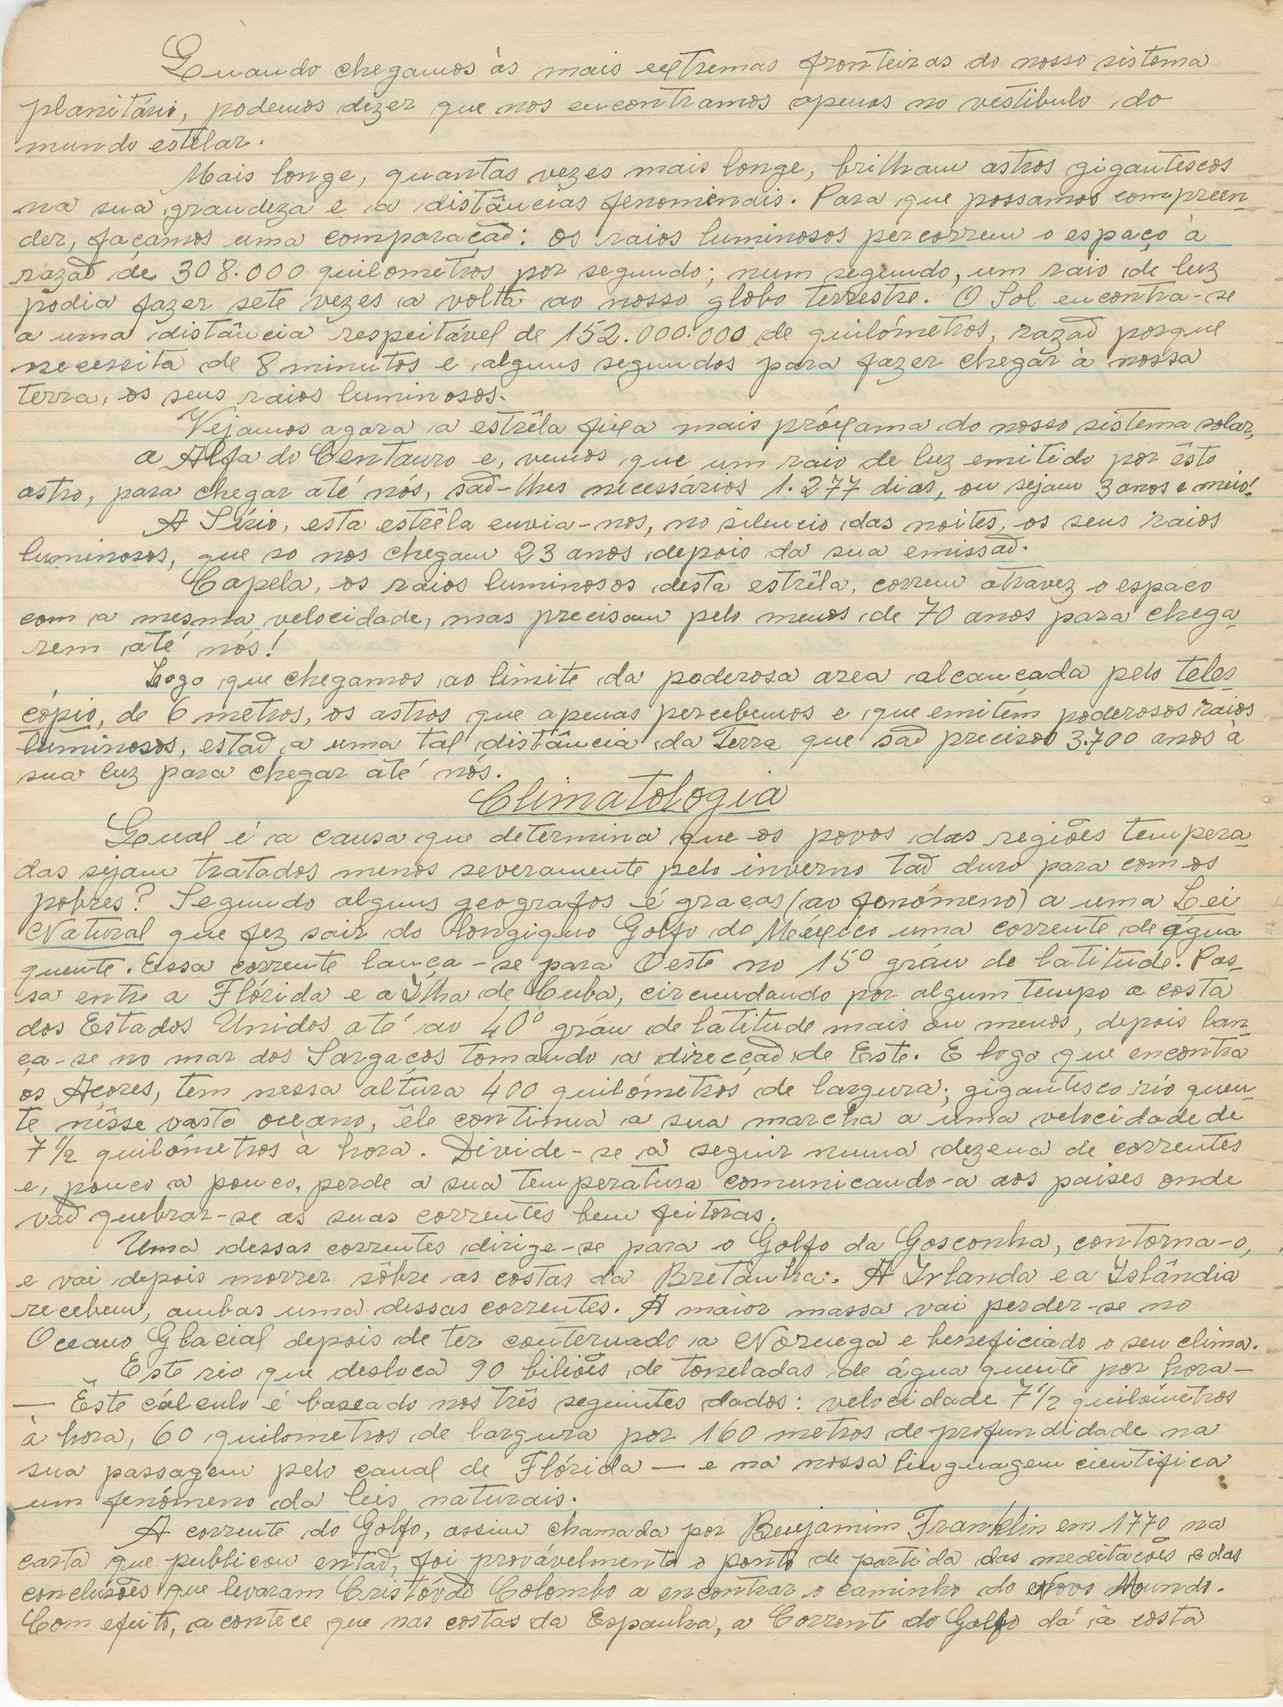 Quando chegamos às mais extremas fronteiras do nosso sistema
planitário, podemos dizer que nos encontramos apenas no vestibulo do
mundo estelar.
Mais longe, quantas vezes mais longe, brilham astros gigantescos
na sua grandeza e a distâncias fenomenais. Para que possamos compreen-
der, façamos uma comparação: os raios luminosos percorrem o espaço à
razão de 308.000 quilometros por segundo; num segundo, um raio de luz
podia fazer sete vezes a volta ao nosso globo terrestre. O Sol encontra-se
a uma distância respeitável de 152.000.000 de quilómetros, razão porque
necessita de 8 minutos e alguns segundos para fazer chegar à nossa
terra, os seus raios luminosos.
Vejamos agora a estrêla fixa mais próxama do nosso sistema solar,
a Alfa do Centauro e, vemos que um raio de luz emitido por êste
astro, para chegar até nós, são-lhes necessários 1.277 dias, ou sejam 3 anos e meio!
A Sírio, esta estrêla envia-nos, no silencio das noites, os seus raios
luminosos, que so nos chegam 23 anos depois da sua emissão.
Capela, os raios luminosos desta estrêla, correm atravez o espaco
com a mesma velocidade, mas precisam pelo menos de 70 anos para chega-
rem até nós!
Logo que chegamos ao limite da poderosa area alcançada pelo teles-
cópio, de 6 metros, os astros que apenas percebemos e que emitem poderosos raios
luminosos, estão a uma tal distância da Terra que são precisos 3.700 anos à
sua luz para chegar até nós.
Climatologia
Qual é a causa que determina que os povos das regiões tempera-
das sejam tratados menos severamente pelo inverno tão duro para com os
pobres? Segundo alguns geografos é graças (ao fenómeno) a uma Lei
Natural que fez sair do longiquo Golfo do México uma corrente de água
quente. Essa corrente lança-se para Oeste no 15º gráu de latitude. Pas-
sa entre a Flórida e a Ilha de Cuba, circundando por algum tempo a costa
dos Estados Unidos até ao 40º gráu de latitude mais ou menos, depois lan-
ça-se no mar dos Sargaços tomando a direcção de Este. E logo que encontra
os Açores, tem nessa altura 400 quilómetros de largura; gigantesco rio quen-
te nêsse vasto oceano, êle continua a sua marcha a uma velocidade de
7 1/2 quilómetros à hora. Divide-se a seguir numa dezena de correntes
e, pouco a pouco, perde a sua temperatura comunicando-a aos paises onde
vão quebrar-se as suas correntes bem feitoras.
Uma dessas correntes dirige-se para o Golfo da Gosconha, contorna-o,
e vai depois morrer sôbre as costas da Bretânha. A Irlanda e a Islândia
recebem, ambas uma dessas correntes. A maior massa vai perder-se no
Oceano Glacial depois de ter conternado a Noruega e beneficiado o seu clima.
Este rio que desloca 90 biliões de toneladas de água quente por hora —
— Êste cálculo é baseado nos três seguintes dados: velocidade 7 1/2 quilómetros
à hora, 60 quilometros de largura por 160 metros de profundidade na
sua passagem pelo canal de Flórida — e na nossa linguagem cientifica
um fenómeno da leis naturais.
A corrente do Golfo, assim chamada por Benjamim Franklin em 1770 na
carta que publicou então, foi provávelmente o ponto de partida das meditações e das
conclusões que levaram Cristóvão Colombo a encontrar o caminho do Novo Mundo.
Com efeito, acontece que nas costas da Espanha, a Corrente do Golfo dá à costa